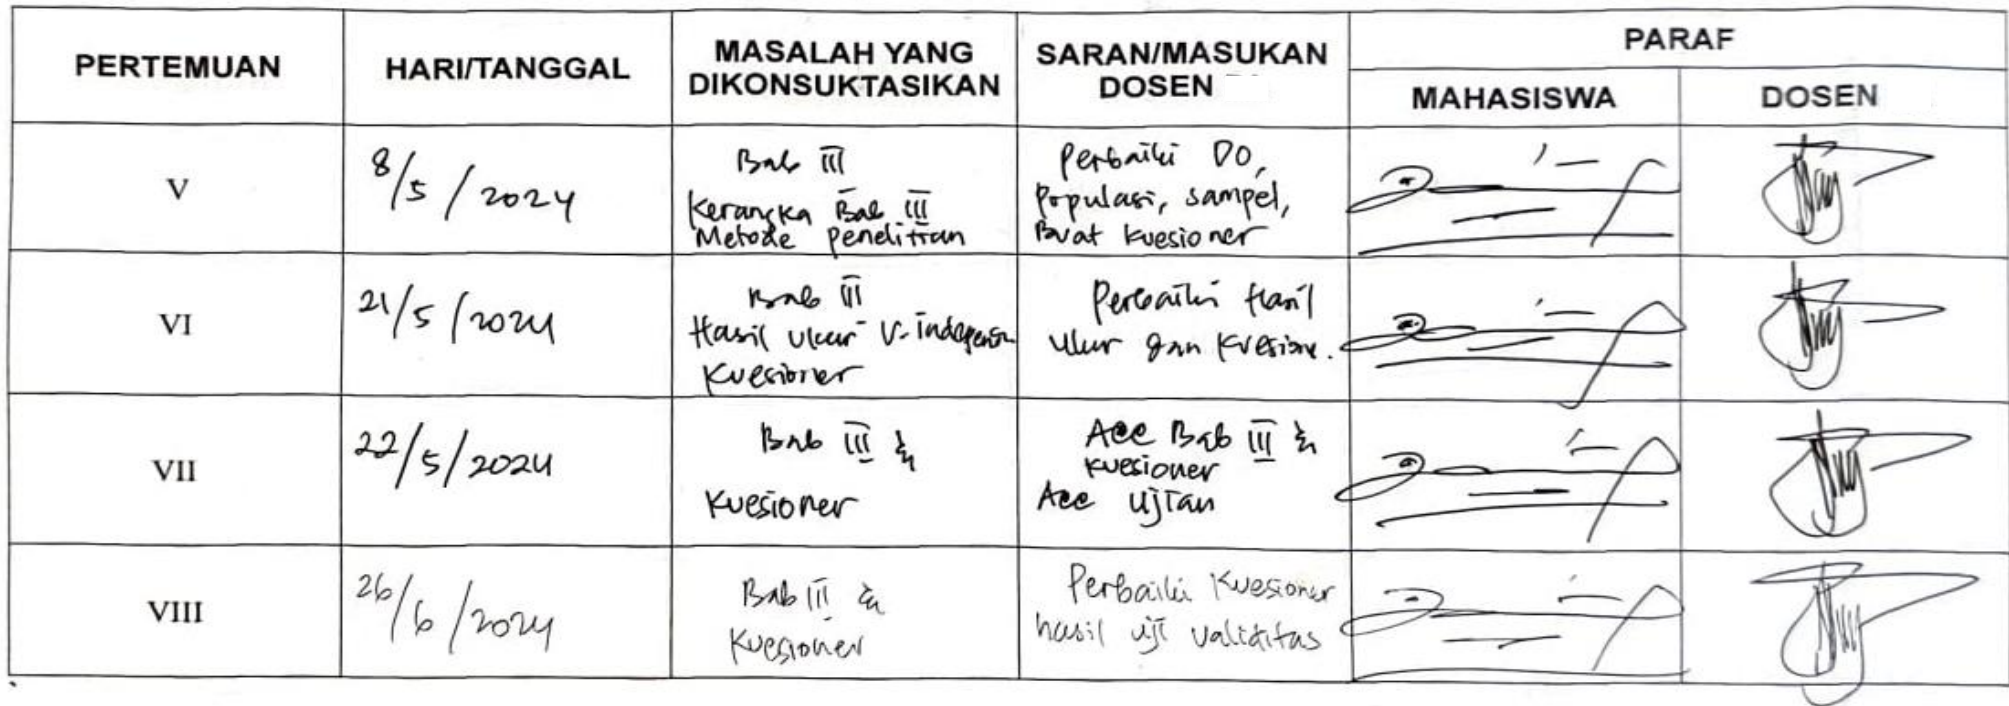 PERTEMUAN
HARI/TANGGAL
MASALAH YANG
DIKONSUKTASIKAN
SARAN/MASUKAN
DOSEN
PARAF
MAHASISWA
DOSEN
V
8/5/2024
Bab III
Kerangka Bab III
Metode penelitian
Perbaiki DO,
Populasi, sampel,
Buat kuesioner
VI
21/5/2024
Bab III
Hasil ukur V-independen
Kuesioner
Perbaiki Hasil
Ukur dan Kuesione.
VII
22/5/2024
Bab III &
Kuesioner
Acc Bab III &
Kuesioner
Acc Ujian
VIII
26/6/2024
Bab III &
Kuesioner
Perbaiki Kuesioner
hasil uji validitas